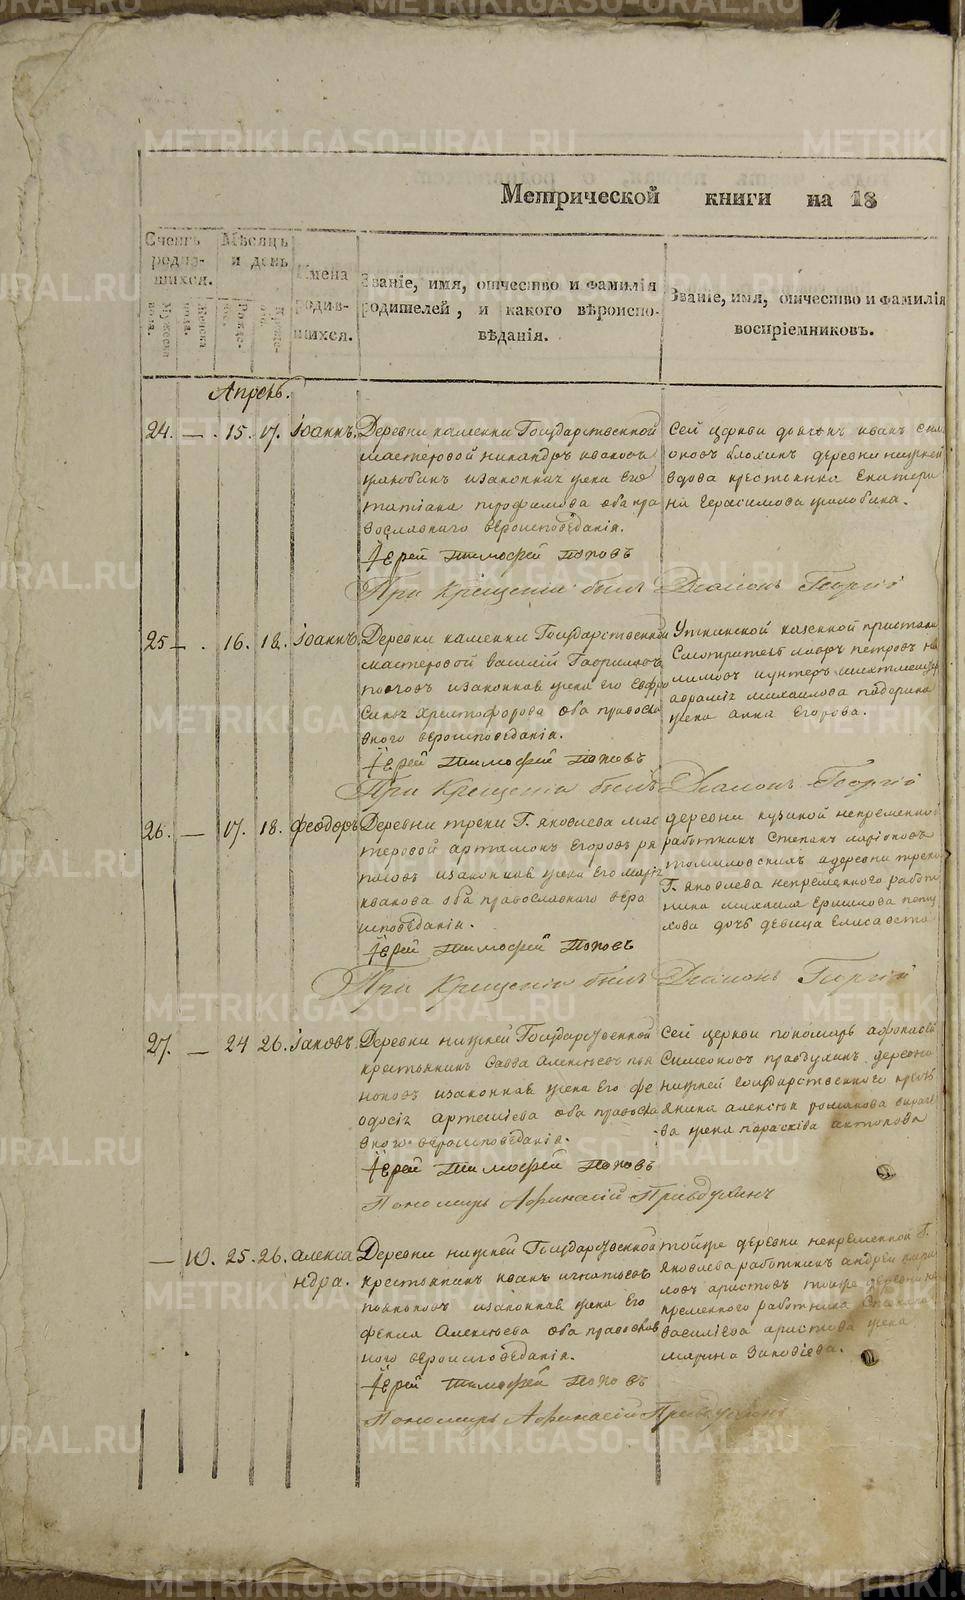 METRIKI.GASO-URAL.RU
Метрической книги на 18
Счетъ родив-
шихся.
Мѣсяцъ
и день
Имена
родив-
шихся.
Званіе, имя, отчество и фамилія
родителей, и какого вѣроиспо-
вѣданія.
Званіе, имя, отчество и фамилія
воспріемниковъ.
Апрель.
24. — . 15. 17. Іоаннъ.
Деревни каменки Государственной
мастеровой никандръ ивановъ
жолобинъ изаконная жена Его
татіана трофимова оба пра
вославнаго вероисповеданія.
Іерей Тимофей Поповъ
При Крещеніи былъ Діаконъ Георгій
Сей церкви
иванъ
деревни нижней
вдова крестьянка Екатери
на Герасимова жолобина.
25 — . 16. 18. Іоаннъ.
Деревни каменки Государственной
мастеровой василій Гавриловъ
изаконная жена его Евфро
Христофорова оба правосла
внаго вероисповеданія.
Іерей Тимофей Поповъ
При Крещеніи былъ Діаконъ Георгій
Уткинской казенной пристани
Смотритель лавръ петровъ
михайлова
жена анна Егорова.
26. — 17. 18. Феодоръ
Деревни треки Г. Яковлева мас
теровой артамонъ Егоровъ
изаконная жена Его марія
иванова оба православнаго веро
исповеданія.
Іерей Тимофей Поповъ
При Крещеніи былъ Діаконъ Георгій
деревни кузиной непременной
работникъ Степанъ
томиловскихъ идеревни треки
Г. Яковлева непременного работ
ника михаила
дочь девица Елисавета
27. — 24 26. Іаковъ.
Деревни нижней Государственной
крестьянинъ Савва Алексеевъ пья
нковъ изаконная жена Его фе
одосія Артемиева оба правосла
внаго вероисповеданія.
Іерей Тимофей Поповъ
Пономарь Афанасій Правдухинъ
Сей церкви пономарь афонасій
Симеоновъ правдухинъ деревни
нижней Государственного крест
янина алексея романова
ва жена парасківа антонова
— 10. 25. 26. алекса
ндра.
Деревни нижней Государственной
крестьянинъ иванъ игнатьевъ
пьянковъ изаконная жена Его
фекла Алексеева оба православ
ного вероисповеданія.
Іерей Тимофей Поповъ
Пономарь Афанасій Правдухинъ
тойже деревни непременной Г.
Яковлева работникъ андрей
аристовъ тойже деревни не
пременного работника
василіева аристова жена
марина